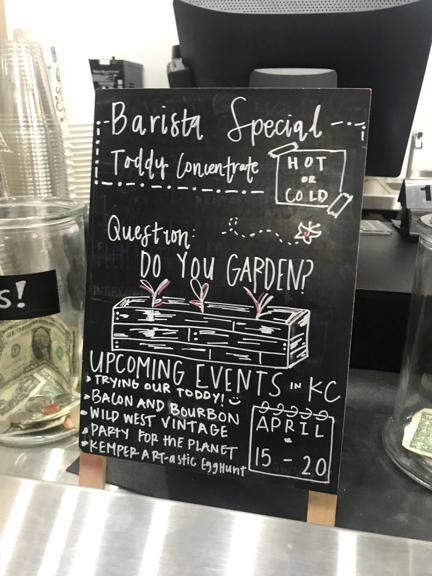 Barista Special
Toddy Concentrate
HOT
OR
COLD
Question:
DO YOU GARDEN?
UPCOMING EVENTS IN KC
TRYING OUR TODDY!
BACON AND BOURBON
WILD WEST VINTAGE
PARTY FOR THE PLANET
KEMPER ART-astic EggHunt
APRIL
15 - 20
S!